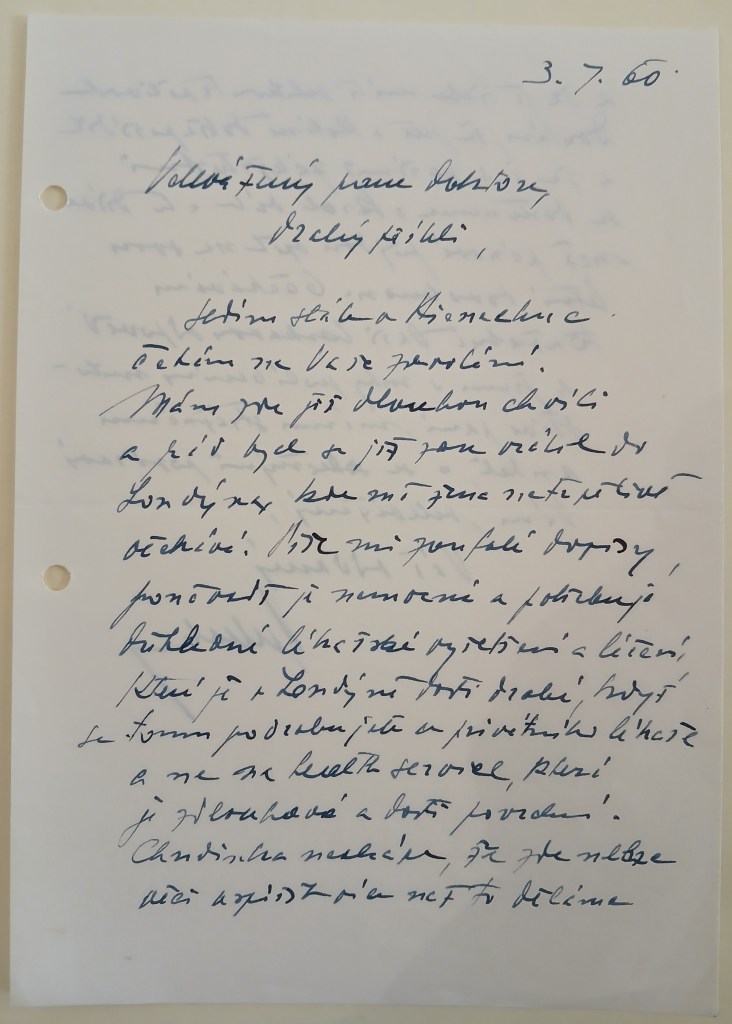 3. 7. 60.
Velevážený pane doktore,
drahý příteli,
sedím stále v
čekám na Vaše zavolání.
Mám zde již dlouhou chvíli
a rád bych se již zase vrátil do
Londýna, kde mě žena netrpělivě
očekává. Píše mi zoufalé dopisy,
poněvadž je nemocná a potřebuje
důkladné lékařské vyšetření a léčení,
které je v Londýně dosti drahé, když
se tomu podrobujete u privátního lékaře
a ne na health service, která
je zdlouhavá a dosti povrchní.
Chudinka nechápe, že zde nelze
věci uspíšit více než to děláme